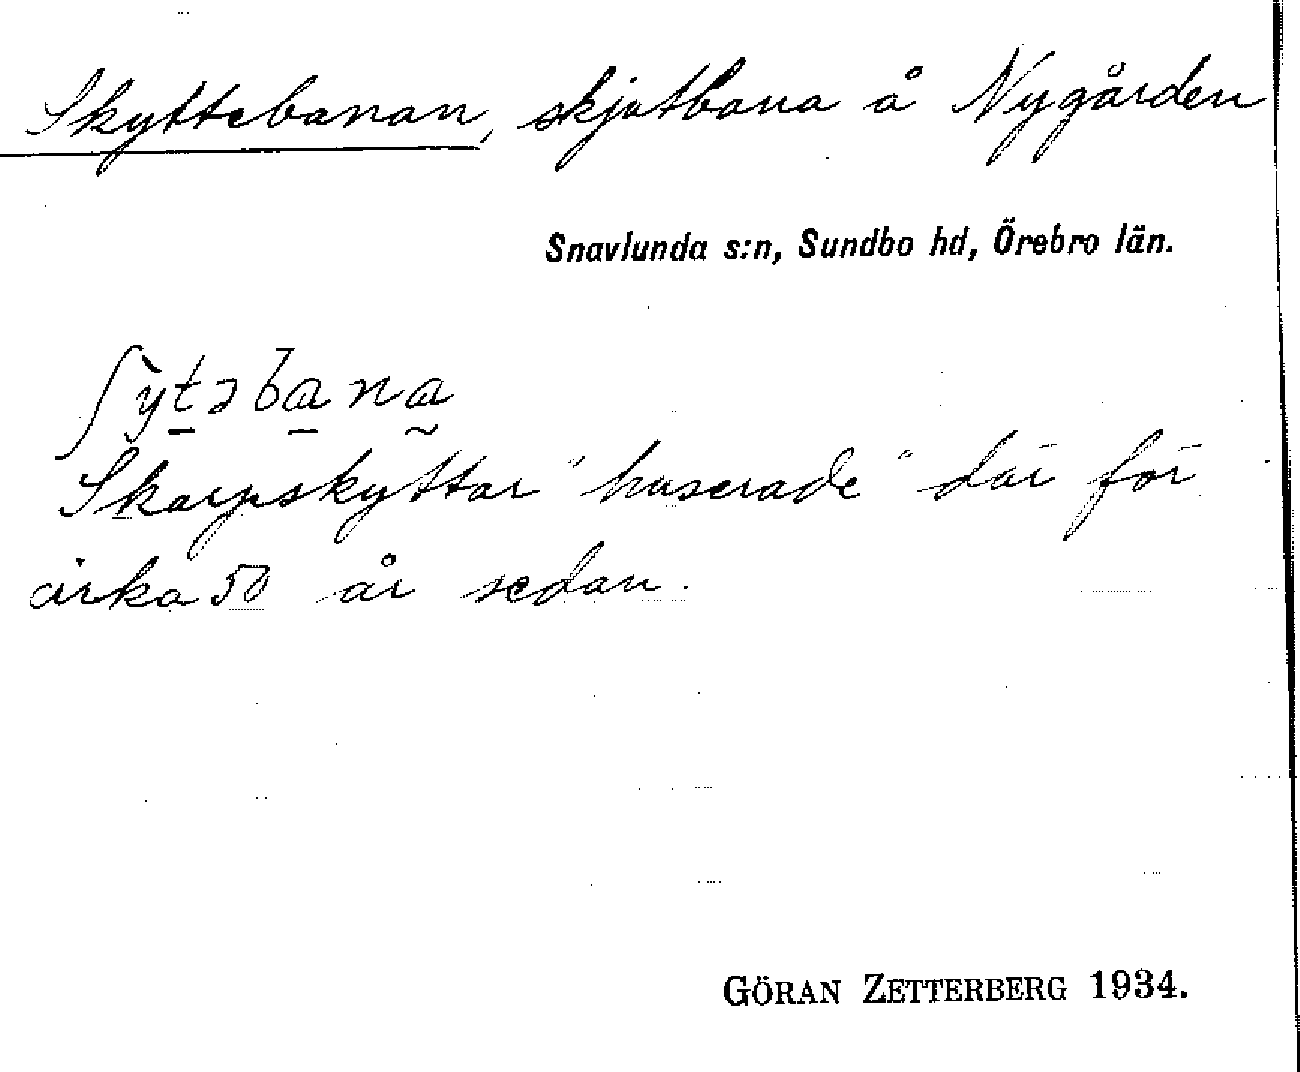 Skyttebanan, skjutbana å Nygården
Snavlunda s:n, Sundbo hd, Örebro län.
ʃỳtəbana
Skarpskyttar "huserade" där för
cirka 50 år sedan.
GÖRAN ZETTERBERG 1934.